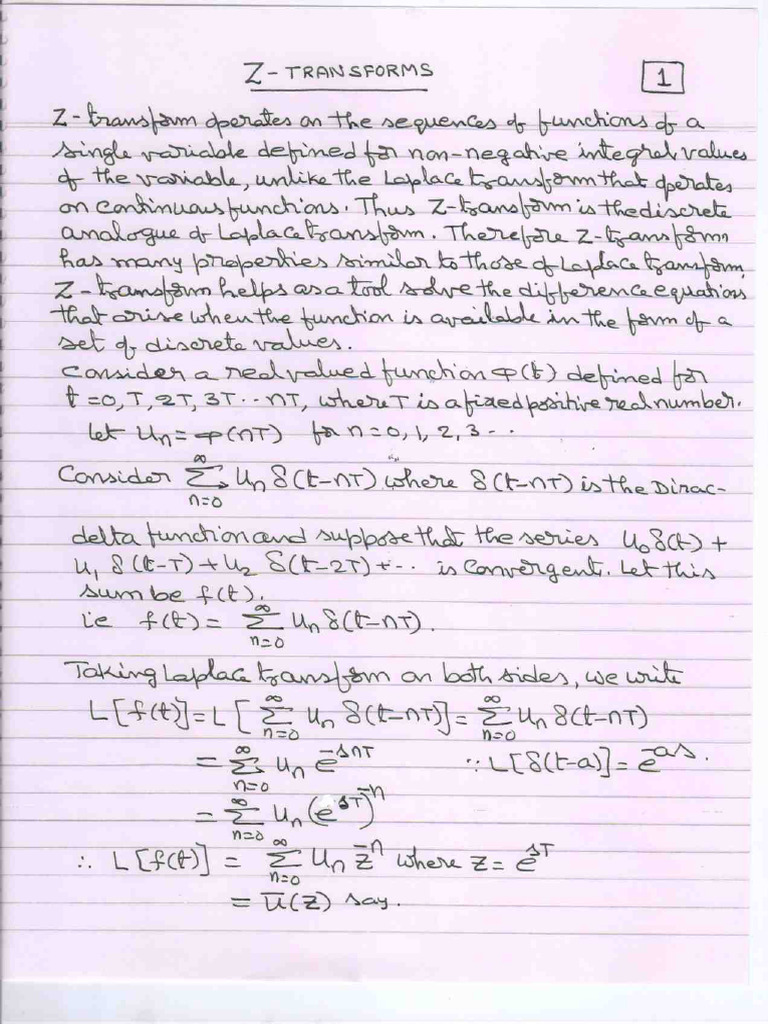 Z-TRANSFORMS
1
Z-transform operates on the sequences of functions of a
single variable defined for non-negative integral values
of the variable, unlike the Laplace transform that operates
on continuous functions. Thus Z-transform is the discrete
analogue of Laplace transform. Therefore Z-transform
has many properties similar to those of Laplace transform.
Z-transform helps as a tool solve the difference equations
that arise when the function is available in the form of a
set of discrete values.
Consider a real valued function φ(t) defined for
t = 0, T, 2T, 3T ·· nT, where T is a fixed positive real number.
let Un = φ(nT) for n = 0, 1, 2, 3 ···
Consider ∞∑n=0 Un δ(t-nT) where δ(t-nT) is the Dirac-
delta function and suppose that the series U0 δ(t) +
U1 δ(t-T) + U2 δ(t-2T) + ··· is convergent. Let this
sum be f(t).
ie f(t) = ∞∑n=0 Un δ(t-nT).
Taking Laplace transform on both sides, we write
L[f(t)] = L[∞∑n=0 Un δ(t-nT)] = ∞∑n=0 Un δ(t-nT)
= ∞∑n=0 Un e^-snT ∵ L[δ(t-a)] = e^-as.
= ∞∑n=0 Un (e^sT)^-n
∴ L[f(t)] = ∞∑n=0 Un z^-n where z = e^sT
= ū(z) say.